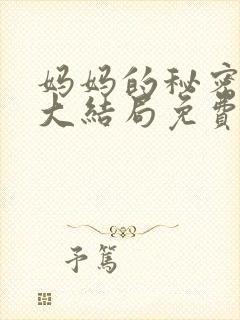 妈妈的秘密
大结局免费
予篤